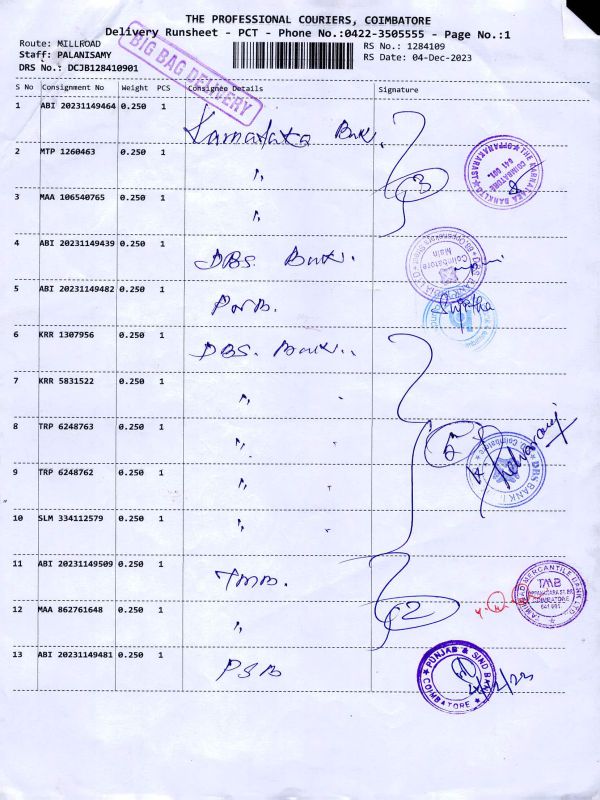 THE PROFESSIONAL COURIERS, COIMBATORE
Delivery Runsheet - PCT - Phone No.:0422-3505555 - Page No.:1
Route: MILLROAD
RS No.: 1284109
Staff: PALANISAMY
RS Date: 04-Dec-2023
DRS No.: DCJB128410901
BIG BAG DELIVERY
S No Consignment No Weight PCS Consignee Details Signature
1 ABI 20231149464 0.250 1 Karnataka Bnk.
2 MTP 1260463 0.250 1 "
3 MAA 106540765 0.250 1 "
3
THE KARNATAKA BANK LTD
COIMBATORE
641 001.
4 ABI 20231149439 0.250 1 DBS. Bnk.
Coimbatore
Main
5 ABI 20231149482 0.250 1 PNB.
6 KRR 1307956 0.250 1 DBS. Bank..
7 KRR 5831522 0.250 1 "
8 TRP 6248763 0.250 1 "
9 TRP 6248762 0.250 1 "
DBS BANK
10 SLM 334112579 0.250 1 "
11 ABI 20231149509 0.250 1 TMB.
TAMILNAD MERCANTILE BANK LTD
TMB
COIMBATORE
641 001
12 MAA 862761648 0.250 1 "
2
13 ABI 20231149481 0.250 1 PSB
PUNJAB & SIND BANK
COIMBATORE
4/12/23